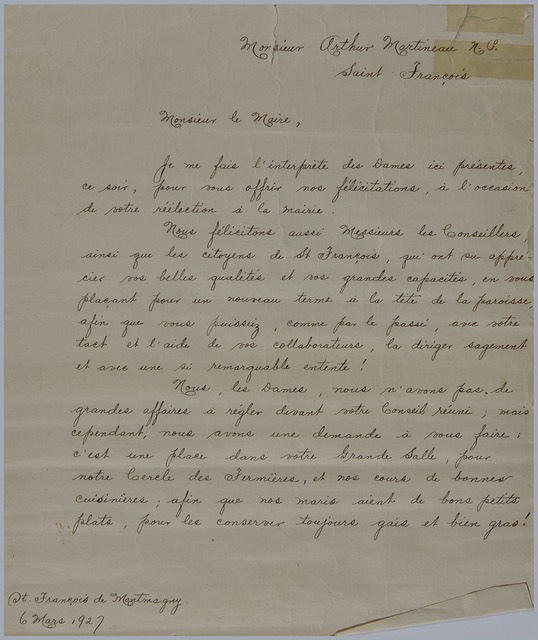 Monsieur Arthur Martineau N.P.
Saint François
Monsieur le Maire,
Je me fais l'interprète des Dames ici présentes,
ce soir, pour vous offrir nos félicitations, à l'occasion
de votre réélection à la mairie.
Nous félicitons aussi Messieurs les Conseillers,
ainsi que les citoyens de St François, qui ont su appré
cier vos belles qualités et vos grandes capacités, en vous
plaçant pour un nouveau terme à la tête de la paroisse,
afin que vous puissiez, comme par le passé, avec votre
tact et l'aide de vos collaborateurs, la diriger sagement
et avec une si remarquable entente!
Nous, les Dames, nous n'avons pas de
grandes affaires à régler devant votre Conseil réuni; mais
cependant, nous avons une demande à vous faire:
c'est une place dans votre Grande Salle, pour
notre Cercle des Fermières, et nos cours de bonnes
cuisinières; afin que nos maris aient de bons petits
plats, pour les conserver toujours gais et bien gras!
St. François de Montmagny.
6 Mars 1927